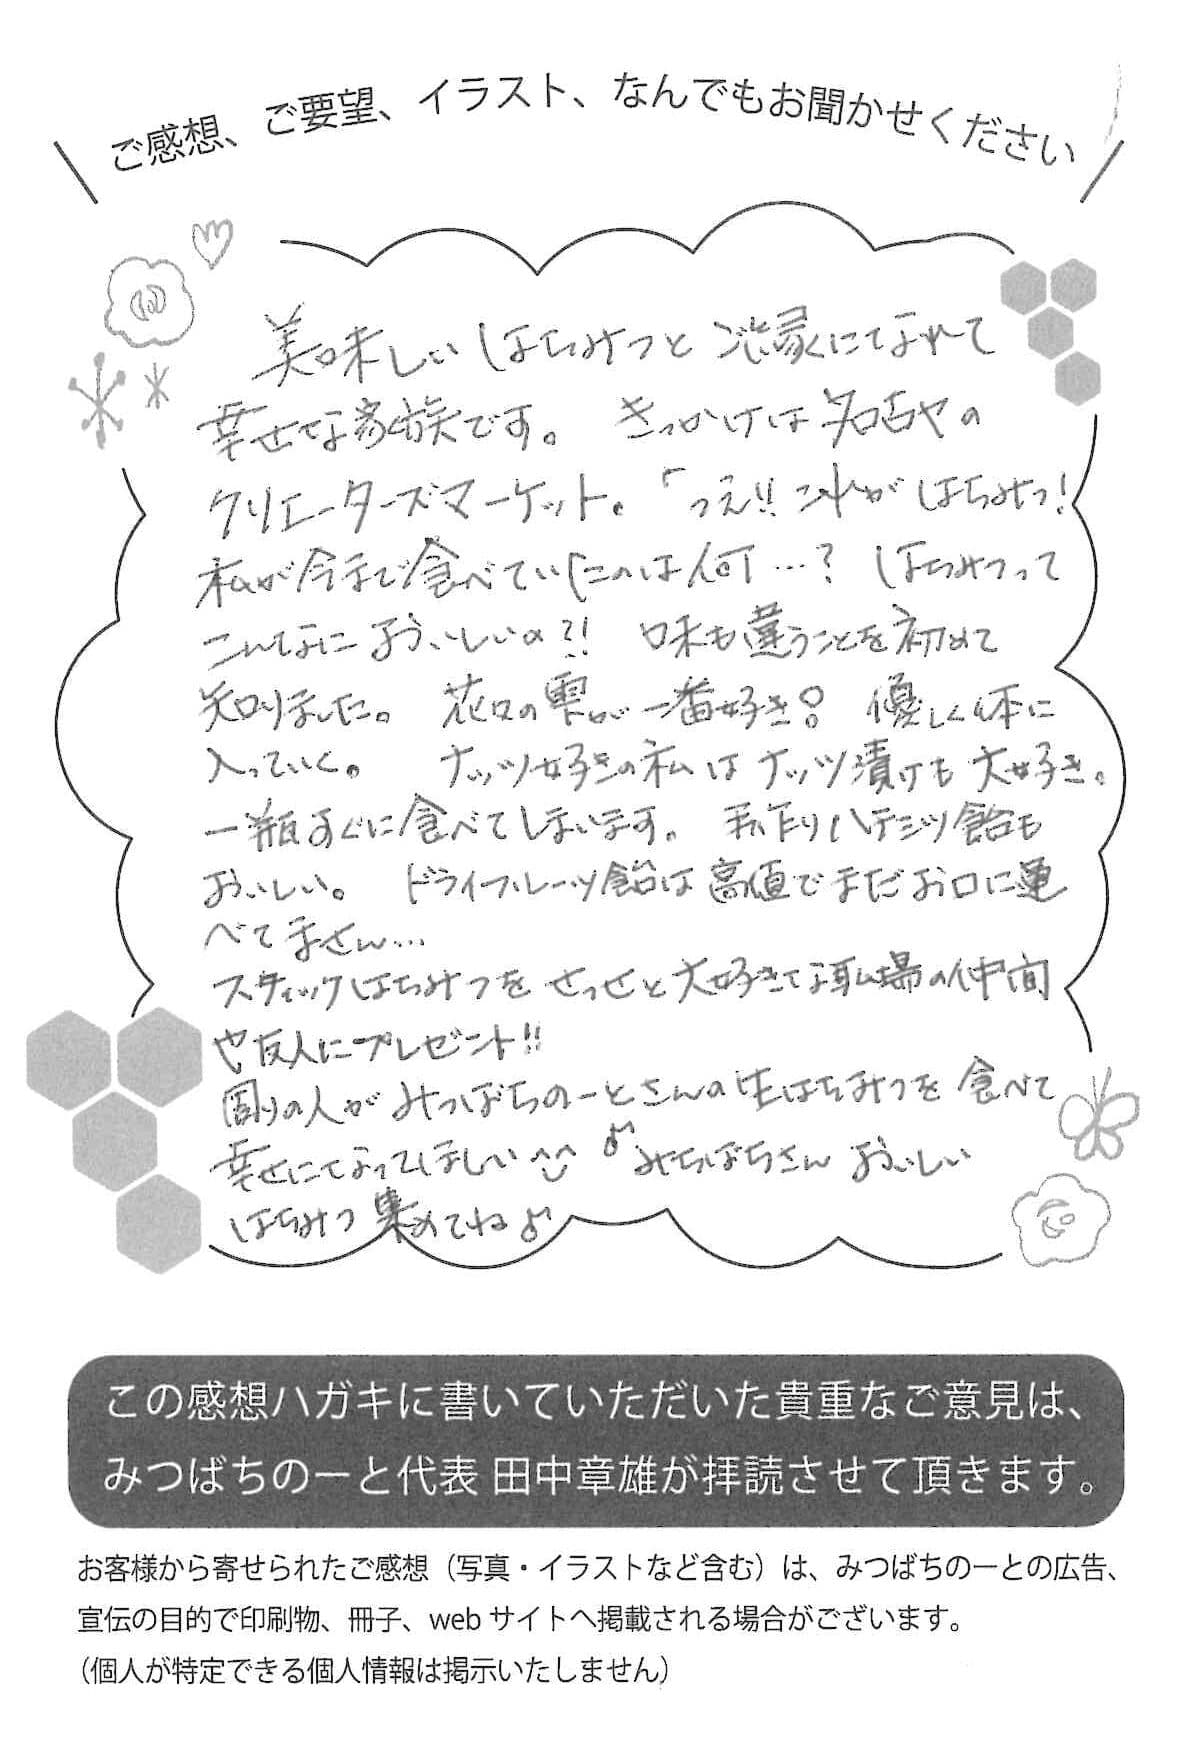 ご感想、ご要望、イラスト、なんでもお聞かせください
美味しいはちみつとご縁になれて
幸せな家族です。 きっかけは名古ヤの
クリエーターズマーケット。「っえ!! これがはちみつ!
私が今まで食べていたのは何…? はちみつって
こんなにおいしいの?! 味も違うことを初めて
知りました。 花々の雫が一番好き! 優しく体に
入っていく。 ナッツ好きの私はナッツ漬けも大好き。
一瓶すぐに食べてしまいます。 手作りハチミツ飴も
おいしい。 ドライフルーツ飴は高値でまだお口に運
べてません…
スティックはちみつをせっせと大好きな職場の仲間
や友人にプレゼント!!
周りの人がみつばちのーとさんの生はちみつを食べて
幸せになってほしい^^ ♪みちばちさん おいしい
はちみつ集めてね♪
この感想ハガキに書いていただいた貴重なご意見は、
みつばちのーと代表 田中章雄が拝読させて頂きます。
お客様から寄せられたご感想（写真・イラストなど含む）は、みつばちのーとの広告、
宣伝の目的で印刷物、冊子、web サイトへ掲載される場合がございます。
（個人が特定できる個人情報は掲示いたしません）